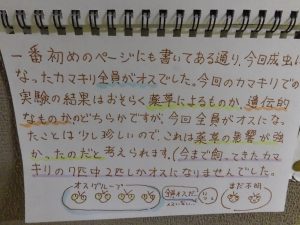 一番初めのページにも書いてある通り、今回成虫に
なったカマキリ全員がオスでした。今回のカマキリでの
実験の結果はおそらく薬草によるものか、遺伝的
なものかのどちらかですが、今回全員がオスになっ
たことは少し珍しいので、これは薬草の影響が強
かったのだと考えられます。(今まで飼ってきたカマ
キリの9匹中2匹しかオスになりませんでした。
オスグループ
全員オスだ。
まだ不明